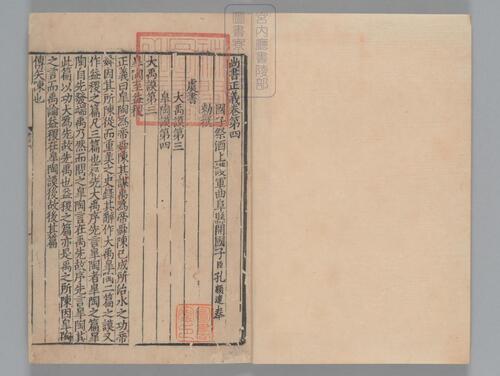 尚書正義卷第四
國子祭酒上護軍曲阜縣開國子臣孔穎達奉
勑撰
虞書
大禹謨第三
皋陶謨第四
大禹謨第三
皋陶至益稷
正義曰皋陶為帝舜陳其謀禹為帝舜陳已成所治水之功帝
舜因其所陳從而重美之史錄其辭作大禹皋陶二篇之謨又
作益稷之篇凡三篇也篇先大禹序先言皋陶者皋陶之篇皋
陶自先發端禹乃然而問之皋陶言在禹先故序先言皋陶其
此篇以功大為先故先禹也益稷之篇亦是禹之所陳因皋陶
之言而禹論益稷在皋陶謨後故後其篇
傳矢陳也
宮內廳書陵部
圖書寮